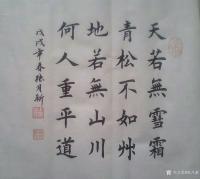 天若無雪霜
青松不如艸
地若無山川
何人重平道
戊戌年春張月新